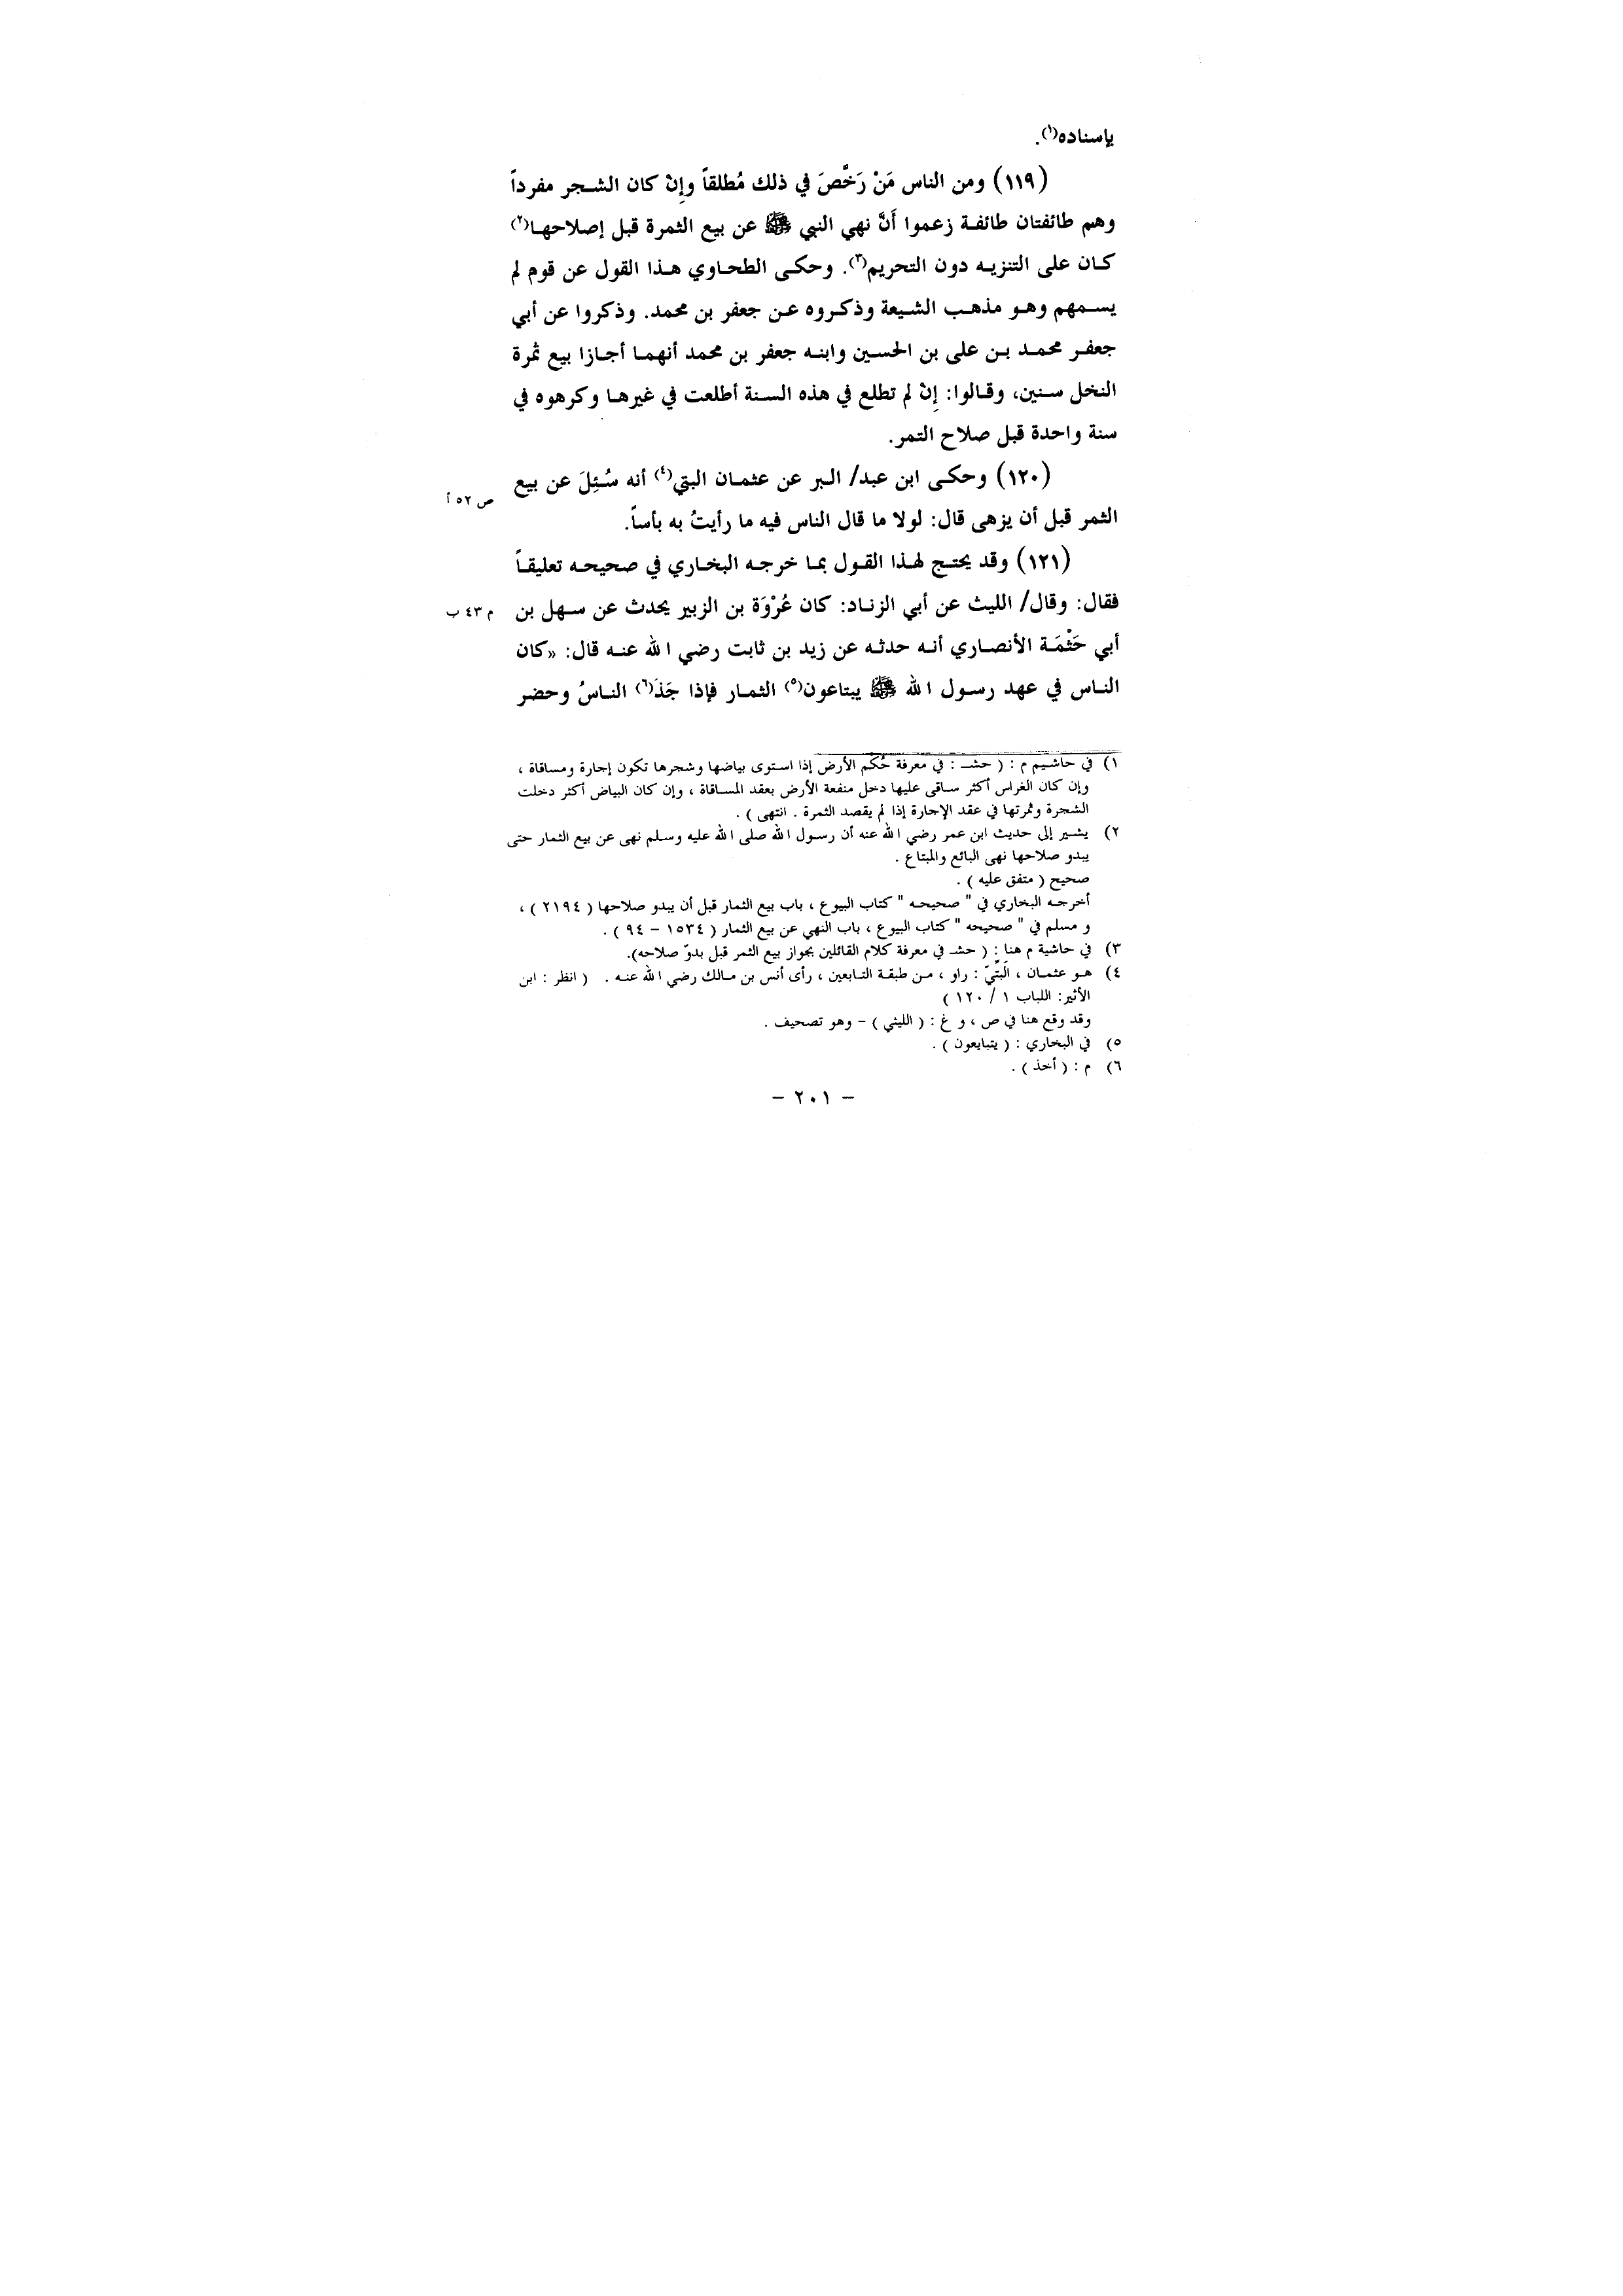 بإسناده(١).
(١١٩) ومن الناس مَنْ رَخَّصَ في ذلك مُطلقاً وإِنْ كان الشجر مفرداً
وهم طائفتان طائفة زعموا أَنَّ نهي النبي ﷺ عن بيع الثمرة قبل إصلاحها(٢)
كان على التنزيه دون التحريم(٣). وحكى الطحاوي هذا القول عن قوم لم
يسمهم وهو مذهب الشيعة وذكروه عن جعفر بن محمد. وذكروا عن أبي
جعفر محمد بن على بن الحسين وابنه جعفر بن محمد أنهما أجازا بيع ثمرة
النخل سنين، وقالوا: إِنْ لم تطلع في هذه السنة أطلعت في غيرها وكرهوه في
سنة واحدة قبل صلاح التمر.
(١٢٠) وحكى ابن عبد/ البر عن عثمان البتي(٤) أنه سُئِلَ عن بيع
ص ٥٢ أ
الثمر قبل أن يزهى قال: لولا ما قال الناس فيه ما رأيتُ به بأساً.
(١٢١) وقد يحتج لهذا القول بما خرجه البخاري في صحيحه تعليقاً
فقال: وقال/ الليث عن أبي الزناد: كان عُرْوَة بن الزبير يحدث عن سهل بن
م ٤٣ ب
أبي حَثْمَة الأنصاري أنه حدثه عن زيد بن ثابت رضي الله عنه قال: «كان
الناس في عهد رسول الله ﷺ يبتاعون(٥) الثمار فإذا جَذَ(٦) الناسُ وحضر
١) في حاشيم م : ( حشـ : في معرفة حُكْم الأرض إذا استوى بياضها وشجرها تكون إجارة ومساقاة ،
وإن كان الغراس أكثر ساقى عليها دخل منفعة الأرض بعقد المساقاة ، وإن كان البياض أكثر دخلت
الشجرة وثمرتها في عقد الإجارة إذا لم يقصد الثمرة . انتهى ) .
٢) يشير إلى حديث ابن عمر رضي الله عنه أن رسول الله صلى الله عليه وسلم نهى عن بيع الثمار حتى
يبدو صلاحها نهى البائع والمبتاع .
صحيح ( متفق عليه ) .
أخرجه البخاري في " صحيحه " كتاب البيوع ، باب بيع الثمار قبل أن يبدو صلاحها ( ٢١٩٤ ) ،
و مسلم في " صحيحه " كتاب البيوع ، باب النهي عن بيع الثمار ( ١٥٣٤ – ٩٤ ) .
٣) في حاشية م هنا : ( حشـ في معرفة كلام القائلين بجواز بيع الثمر قبل بدوّ صلاحه).
٤) هو عثمان ، البَتِّيّ : راو ، من طبقة التابعين ، رأى أنس بن مالك رضي الله عنه . ( انظر : ابن
الأثير: اللباب ١ / ١٢٠ )
وقد وقع هنا في ص ، و غ : ( الليثي ) – وهو تصحيف .
٥) في البخاري : ( يتبايعون ) .
٦) م : ( أخذ ) .
– ٢٠١ –